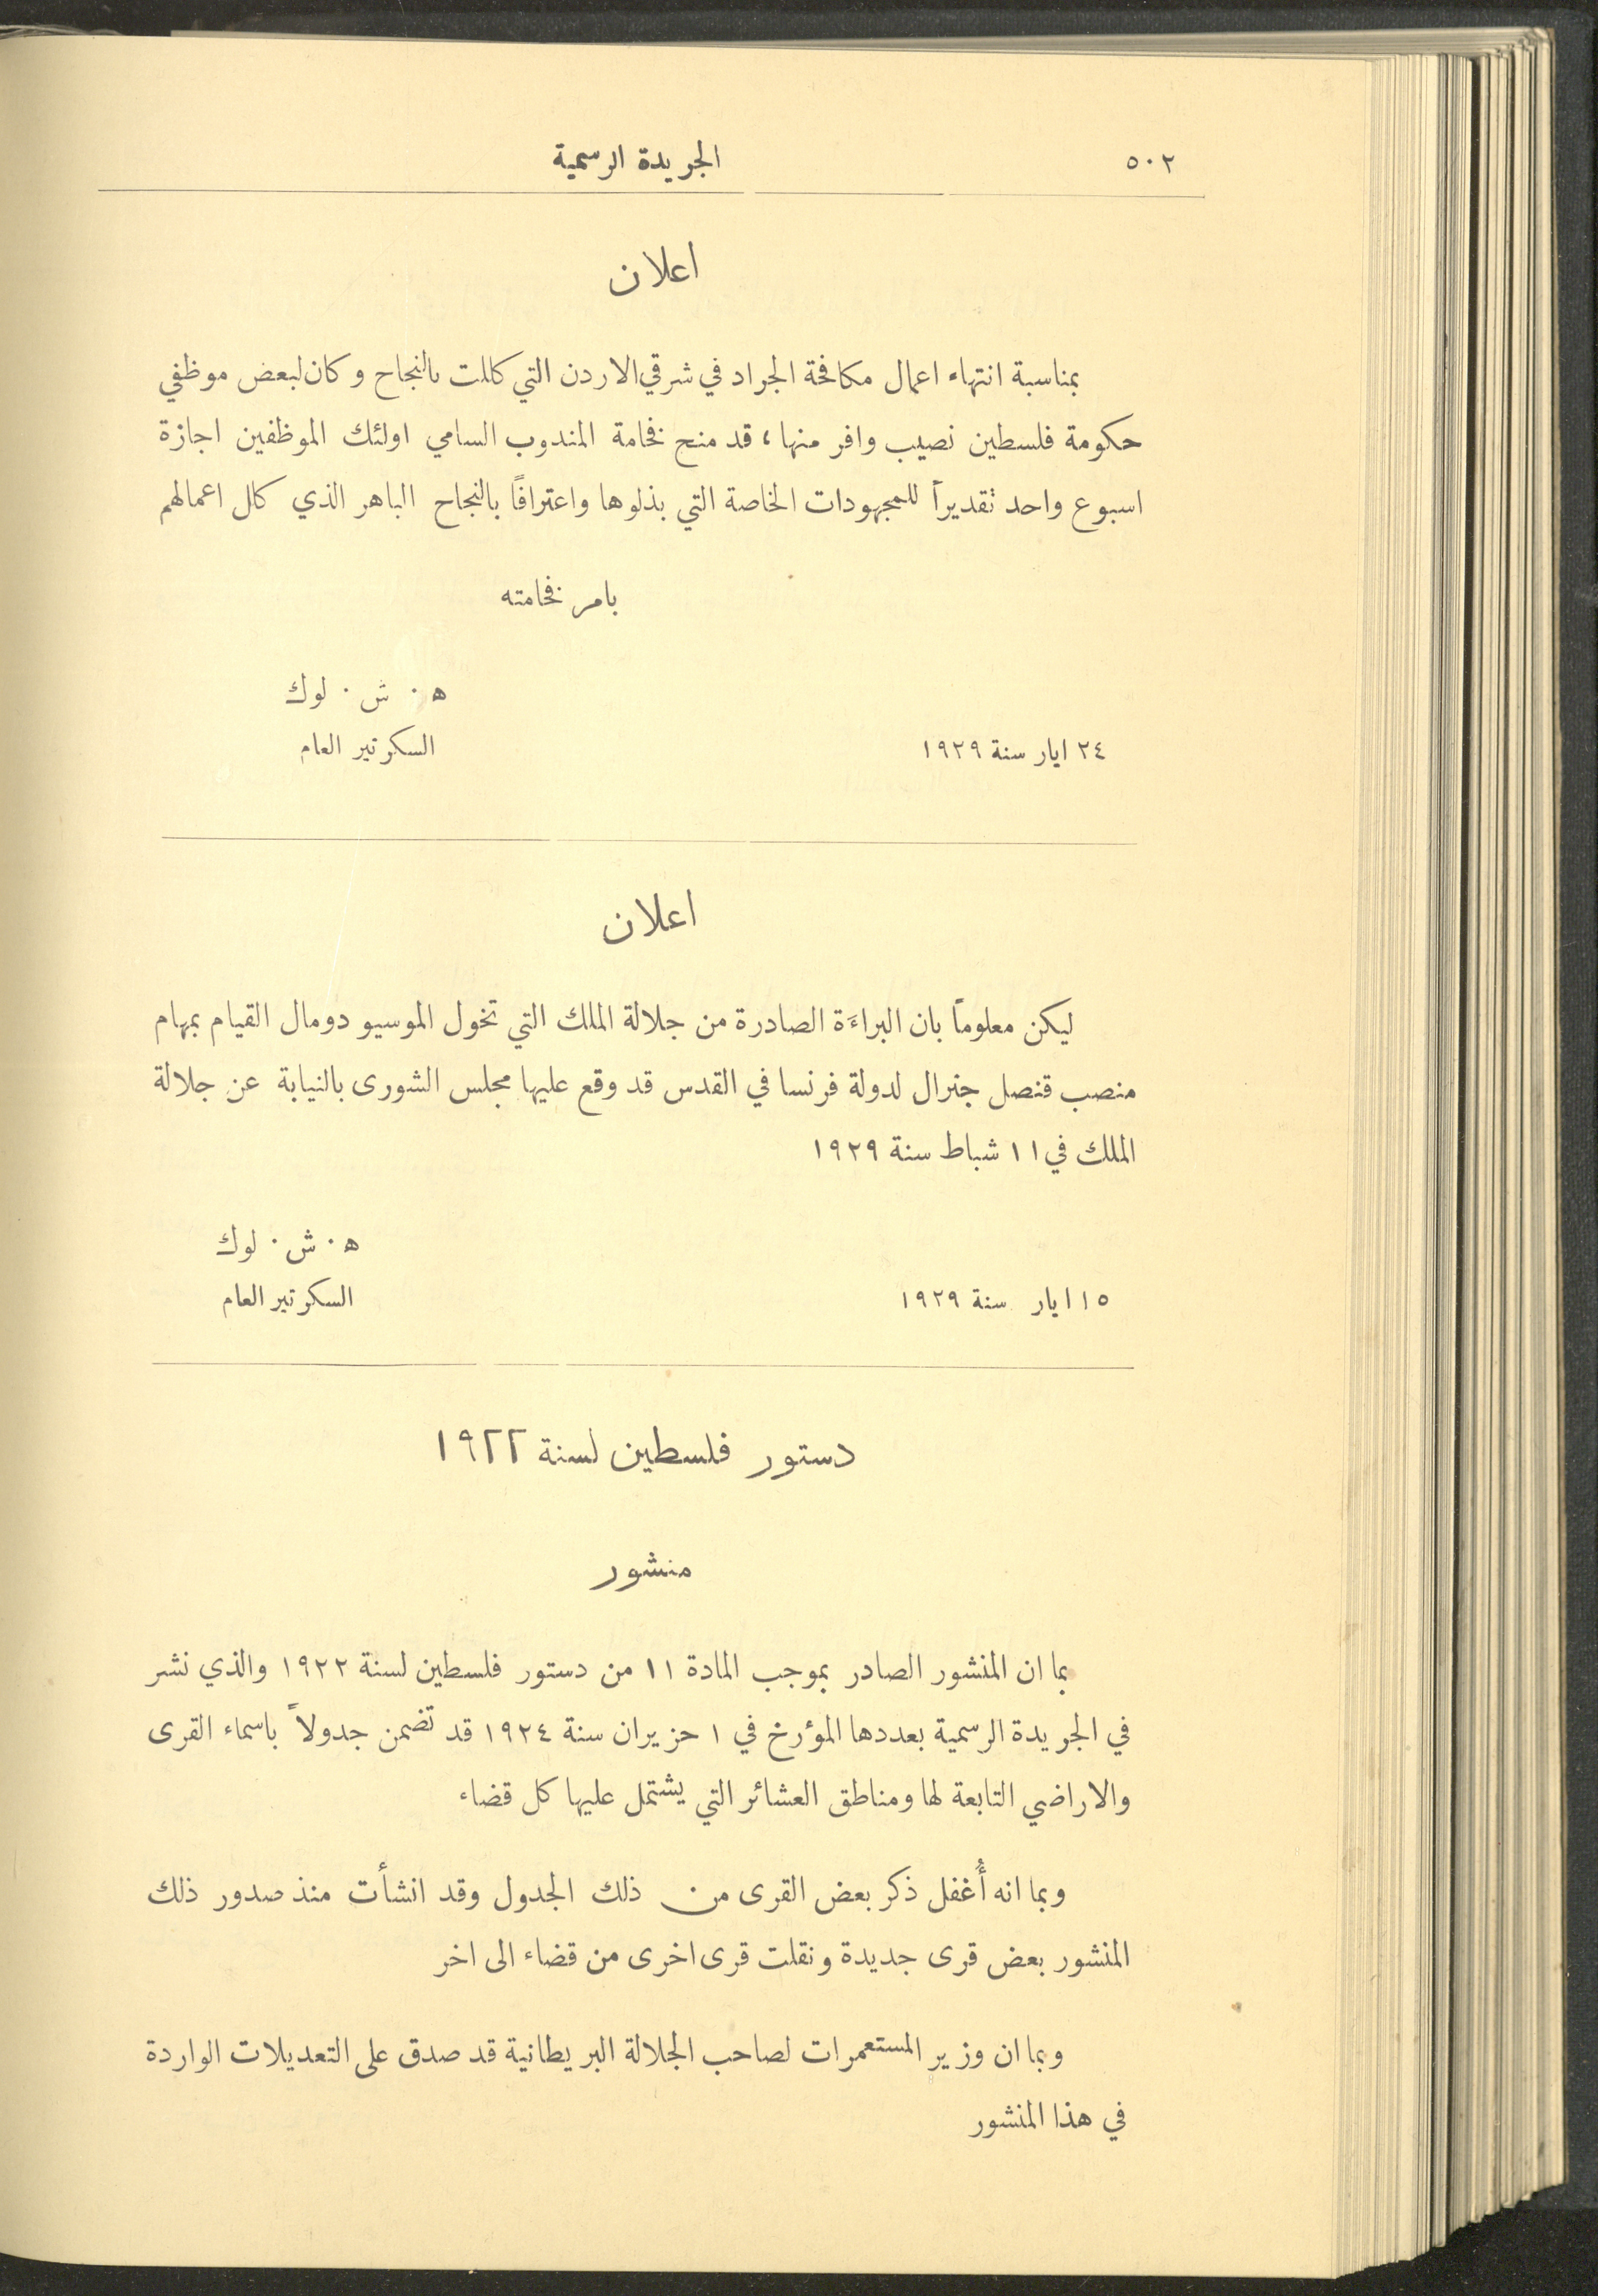 ٥٠٢
الجريدة الرسمية
اعلان
بمناسبة انتهاء اعمال مكافحة الجراد في شرقي الاردن التي كللت بالنجاح وكان لبعض موظفي
حكومة فلسطين نصيب وافر منها، قد منح فخامة المندوب السامي اولئك الموظفين اجازة
اسبوع واحد تقديراً للمجهودات الخاصة التي بذلوها واعترافاً بالنجاح الباهر الذي كلل اعمالهم
بامر فخامته
ه٠ ش٠ لوك
٢٤ ايار سنة ١٩٢٩
السكرتير العام
اعلان
ليكن معلوماً بان البراءَة الصادرة من جلالة الملك التي تخول الموسيو دومال القيام بمهام
منصب قنصل جنرال لدولة فرنسا في القدس قد وقع عليها مجلس الشورى بالنيابة عن جلالة
الملك في ١١ شباط سنة ١٩٢٩
ه٠ ش٠ لوك
١٥ ايار سنة ١٩٢٩
السكرتير العام
دستور فلسطين لسنة ١٩٢٢
منشور
بما ان المنشور الصادر بموجب المادة ١١ من دستور فلسطين لسنة ١٩٢٢ والذي نشر
في الجريدة الرسمية بعددها المؤرخ في ١ حزيران سنة ١٩٢٤ قد تضمن جدولاً باسماء القرى
والاراضي التابعة لها ومناطق العشائر التي يشتمل عليها كل قضاء
وبما انه أُغفل ذكر بعض القرى من ذلك الجدول وقد انشأت منذ صدور ذلك
المنشور بعض قرى جديدة ونقلت قرى اخرى من قضاء الى اخر
وبما ان وزير المستعمرات لصاحب الجلالة البريطانية قد صدق على التعديلات الواردة
في هذا المنشور